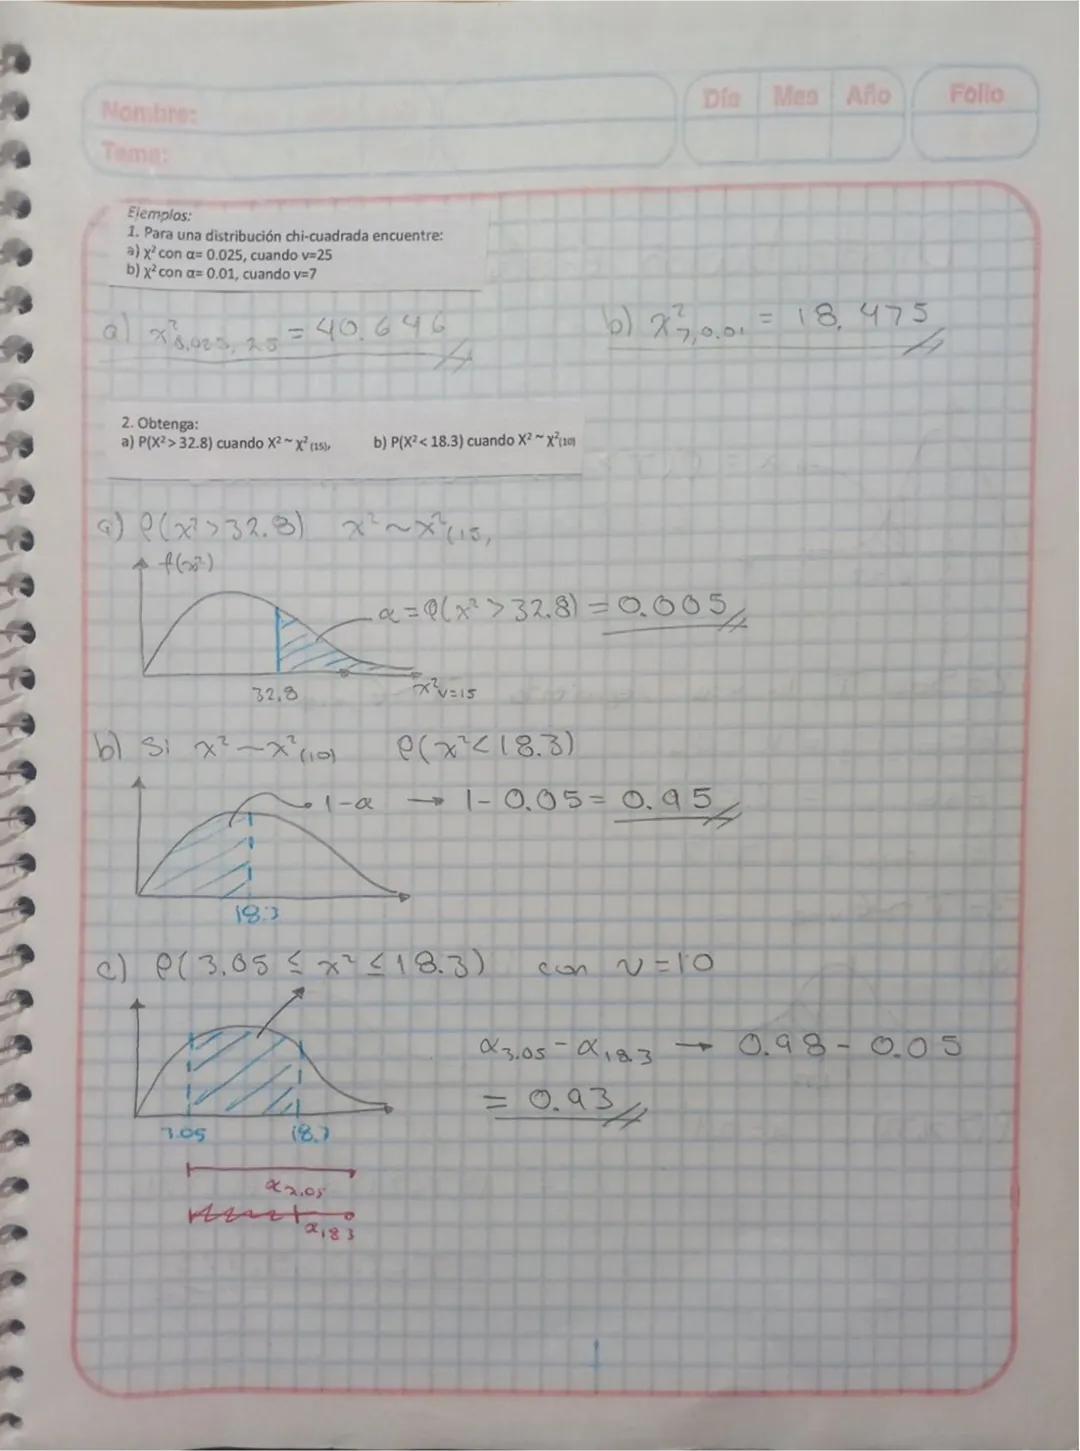 Nombre:
Tema:
Día Mes Año Folio
Ejemplos:
1. Para una distribución chi-cuadrada encuentre:
a) χ² con α= 0.025, cuando v=25
b) χ² con α= 0.01, cuando v=7
a) x²0.025, 25 = 40.646
b) x²7,0.01 = 18.475
2. Obtenga:
a) P(X² > 32.8) cuando X² ~ χ²(15), b) P(X² < 18.3) cuando X² ~ χ²(10)
a) P(x²>32.8) x²~x²(15,
f(x²)
α=P(x²>32.8) = 0.005
32.8
x²v=15
b) Si x²~x²(10) P(x²<18.3)
1-α → 1-0.05= 0.95
18.3
c) P(3.05 ≤ x² ≤ 18.3) con v=10
α3.05 - α18.3 → 0.98 - 0.05
= 0.93
3.05 18.3
α3.05
α18.3